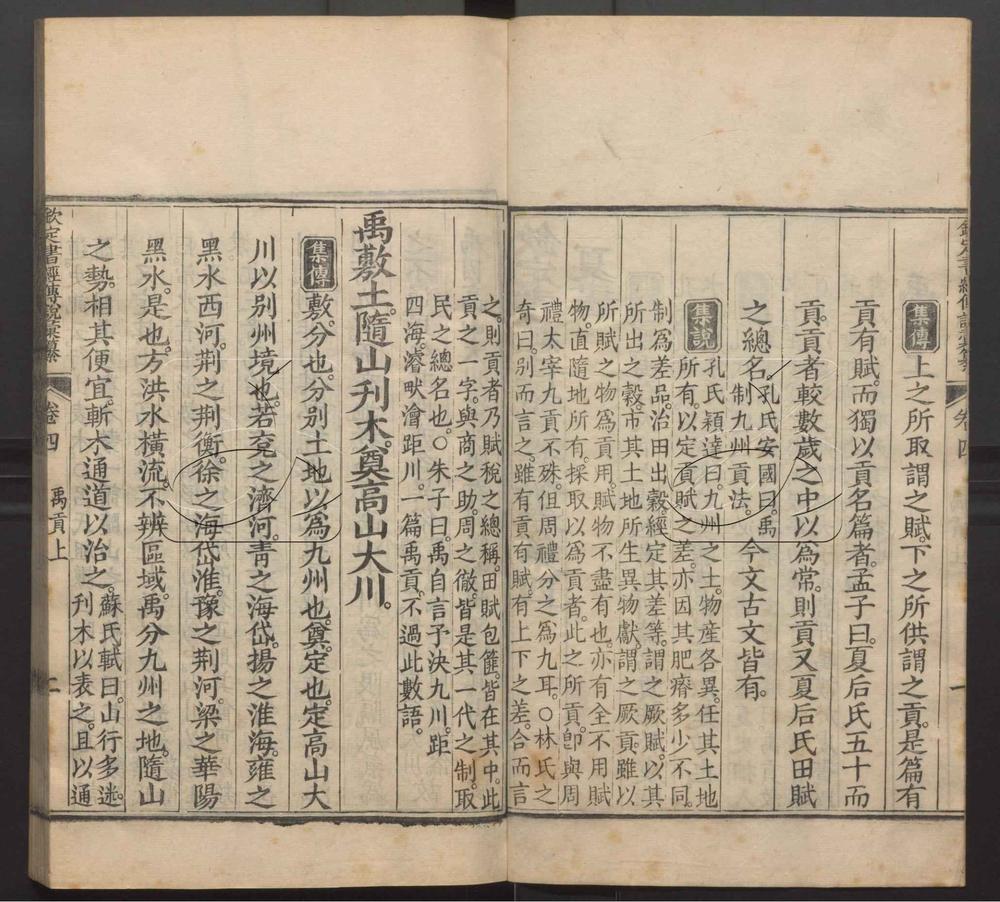 欽定書經傳說彙纂 卷四 一
集傳 上之所取謂之賦下之所供謂之貢是篇有
貢有賦而獨以貢名篇者孟子曰夏后氏五十而
貢貢者較數歲之中以為常則貢又夏后氏田賦
之總名孔氏安國曰禹
制九州貢法今文古文皆有
集說 孔氏穎達曰九州之土物產各異任其土地
所有以定貢賦之差亦因其肥瘠多少不同
制為差品治田出穀經定其差等謂之厥賦以其
所出之穀市其土地所生異物獻謂之厥貢雖以
所賦之物為貢用賦物不盡有也亦有全不用賦
物直隨地所有採取以為貢者此之所貢卽與周
禮太宰九貢不殊但周禮分之為九耳○林氏之
奇曰別而言之雖有貢有賦有上下之差合而言
之則貢者乃賦稅之總稱田賦包篚皆在其中此
貢之一字與商之助周之徹皆是其一代之制取
民之總名也○朱子曰禹自言予決九川距
四海濬畎澮距川一篇禹貢不過此數語
禹敷土隨山刊木奠高山大川
集傳 敷分也分別土地以為九州也奠定也定高山大
川以別州境也若兗之濟河青之海岱揚之淮海雍之
黑水西河荆之荆衡徐之海岱淮豫之荆河梁之華陽
黑水是也方洪水橫流不辨區域禹分九州之地隨山
之勢相其便宜斬木通道以治之蘇氏軾曰山行多迷
刊木以表之且以通
欽定書經傳說彙纂 卷四 禹貢上 二